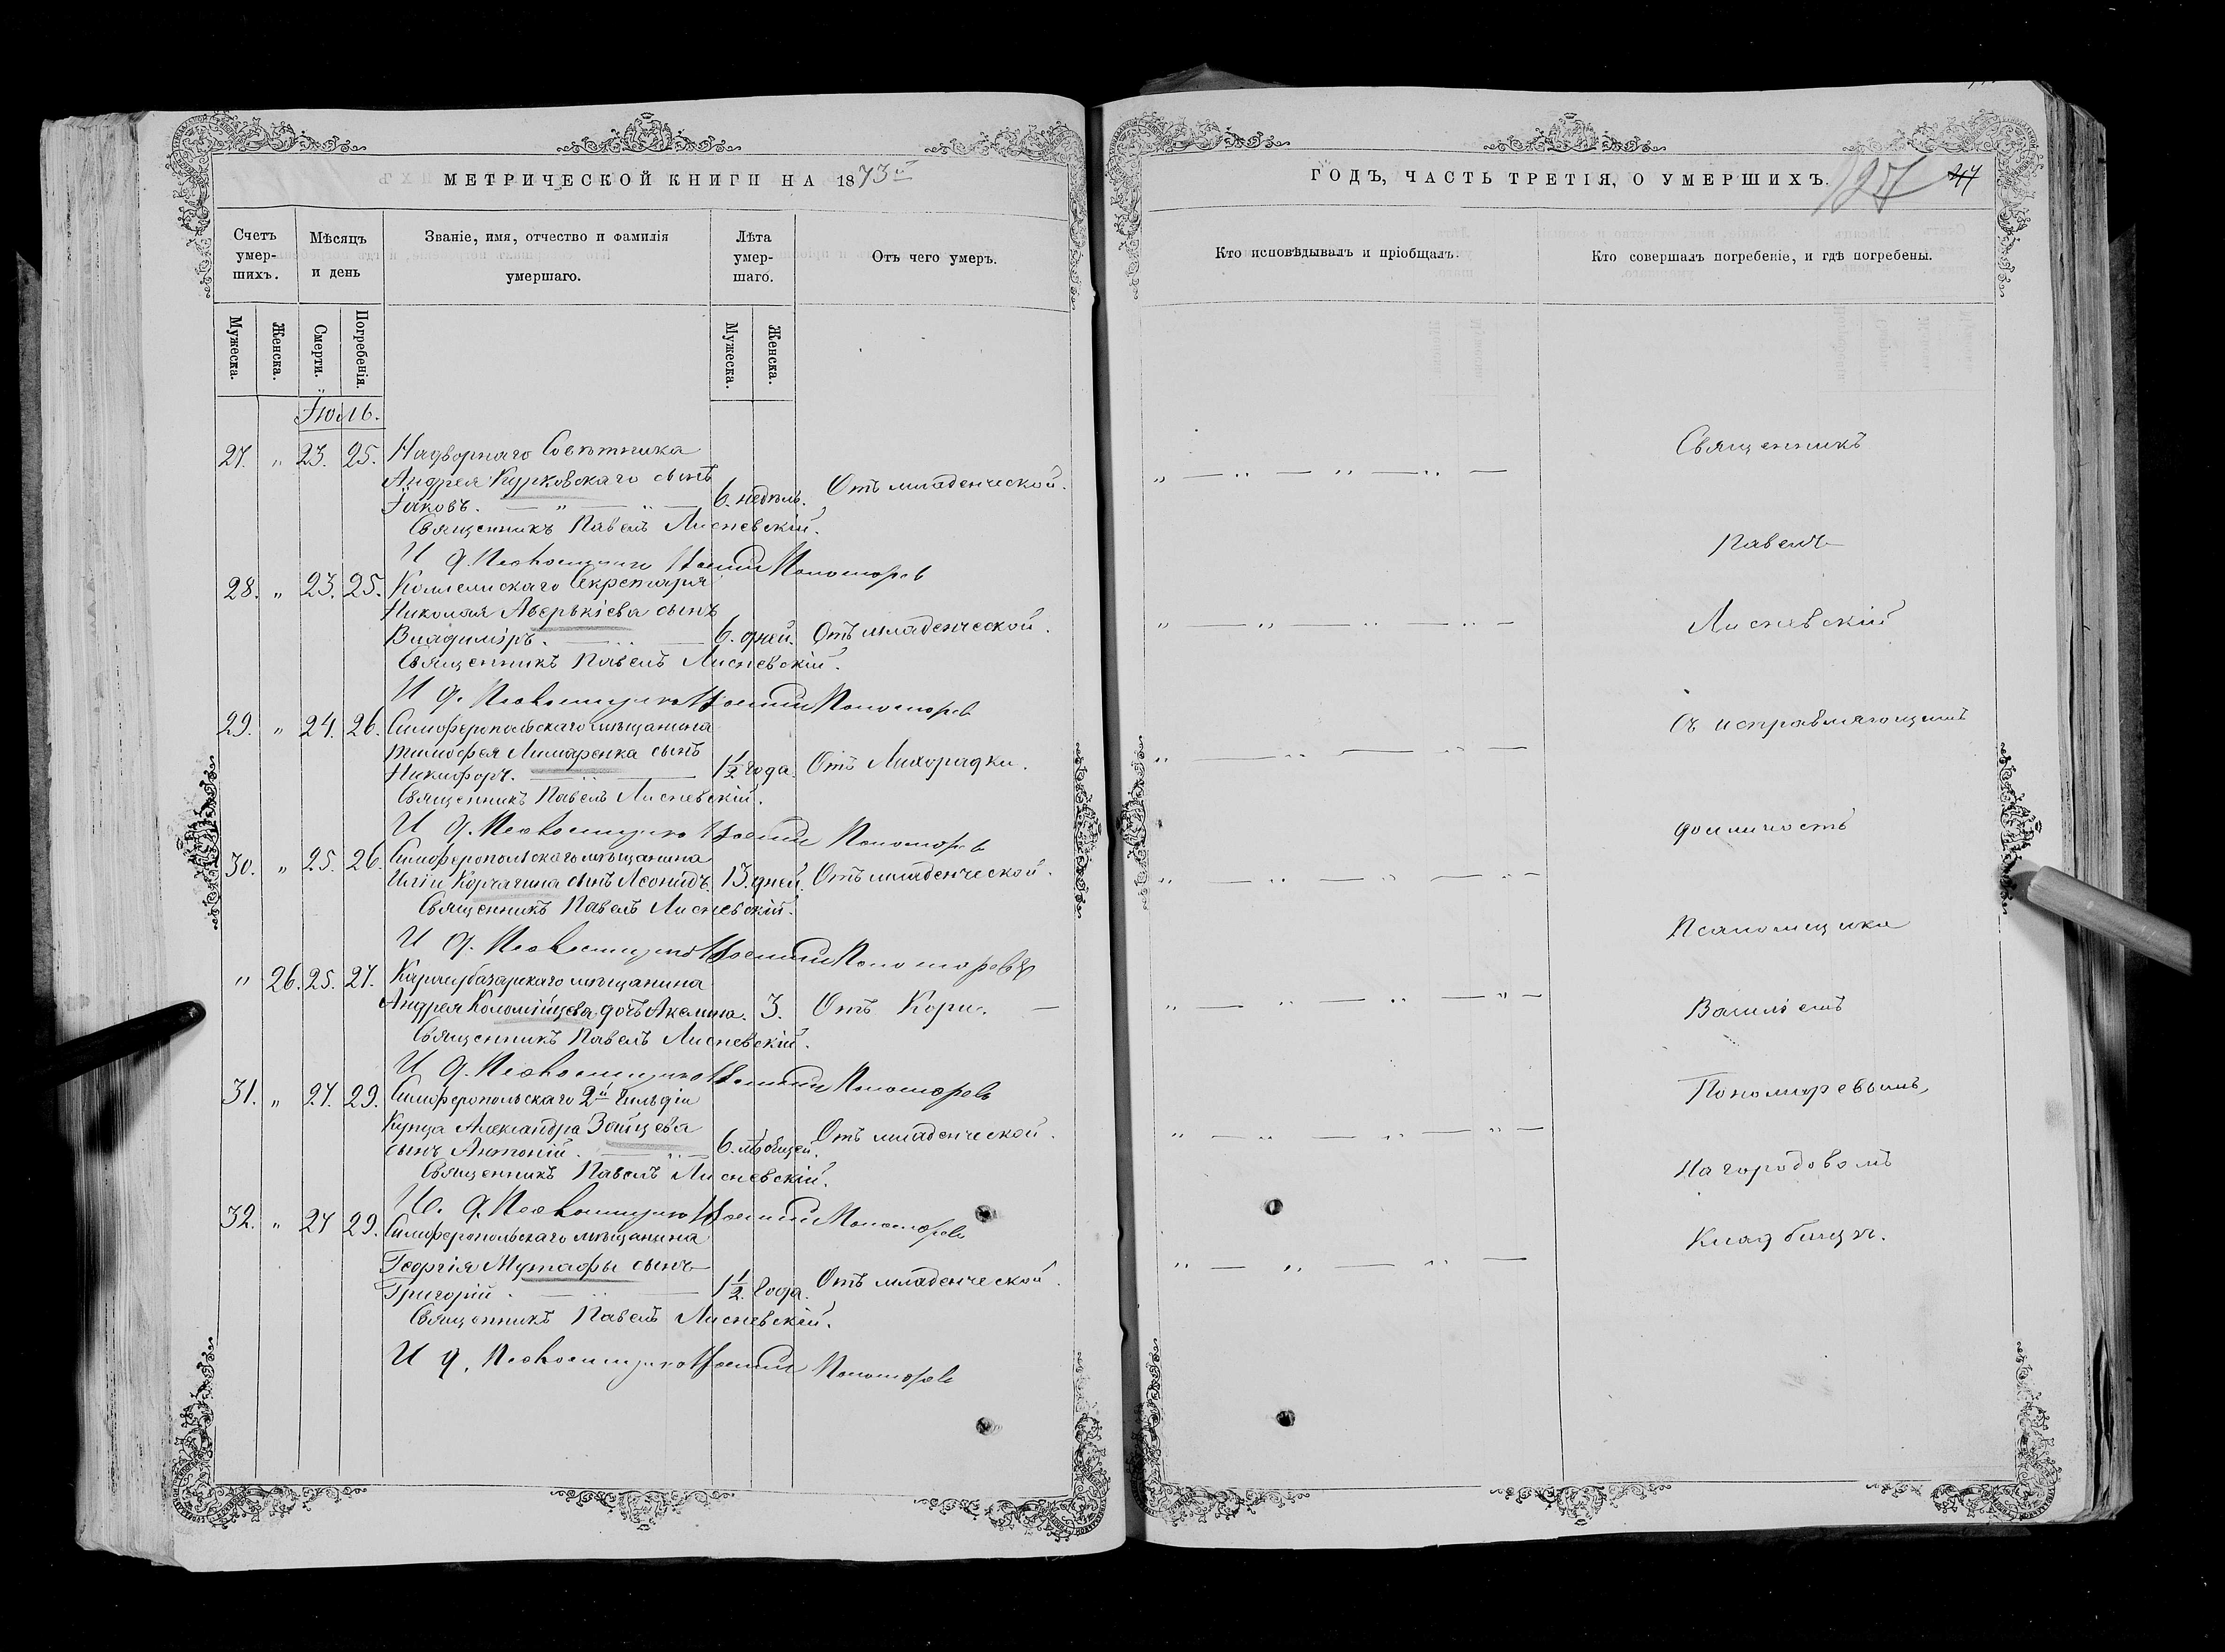 МЕТРИЧЕСКОЙ КНИГИ НА 1873й
Счетъ умер-шихъ.
Мѣсяцъ и день
Званіе, имя, отчество и фамилія умершаго.
Лѣта умер-шаго.
Отъ чего умеръ.
Мужеска.
Женска.
Смерти.
Погребенія.
Мужеска.
Женска.
Іюль.
27. " 23. 25. Надворнаго Совѣтника
Андрея Курковскаго сынъ
Іаковъ. 6. недѣль. Отъ младенческой.
Священникъ Павелъ Лисневскій.
И д. Псаломщика Василій Пономаревъ
28. " 23. 25. Коллежскаго Секретаря
Николая Аверькіева сынъ
Владиміръ. 6. дней. Отъ младенческой.
Священникъ Павелъ Лисневскій.
И д. Псаломщика Василій Пономаревъ
29. " 24. 26. Симферопольскаго мѣщанина
Тимофея Лимаренка сынъ
Никифоръ. 1 1/2 года. Отъ Лихорадки.
Священникъ Павелъ Лисневскій.
И д. Псаломщика Василій Пономаревъ
30. " 25. 26. Симферопольскаго мѣщанина
Иліи Корчагина сынъ Леонидъ. 13. дней. Отъ младенческой.
Священникъ Павелъ Лисневскій.
И д. Псаломщика Василій Пономаревъ
" 26. 25. 27. Карасубазарскаго мѣщанина
Андрея Коломійцева дочь Акелина. 3. Отъ Кори.
Священникъ Павелъ Лисневскій.
И д. Псаломщика Василій Пономаревъ
31. " 27. 29. Симферопольскаго 2й Гильдіи
Купца Александра Зайцева
сынъ Антоній. 6. мѣсяцей. Отъ младенческой.
Священникъ Павелъ Лисневскій.
И. д. Псаломщика Василій Пономаревъ
32. " 27 29. Симферопольскаго мѣщанина
Георгія Мутафы сынъ
Григорій. 1 1/2 года. Отъ младенческой.
Священникъ Павелъ Лисневскій.
И д. Псаломщика Василій Пономаревъ
ГОДЪ, ЧАСТЬ ТРЕТІЯ, О УМЕРШИХЪ.
127 47
Кто исповѣдывалъ и пріобщалъ.
Кто совершалъ погребеніе, и гдѣ погребены.
Священникъ
Павелъ
Лисневскій
съ исправляющимъ
должность
Псаломщика
Василіемъ
Пономаревымъ,
На городовомъ
Кладбищѣ.